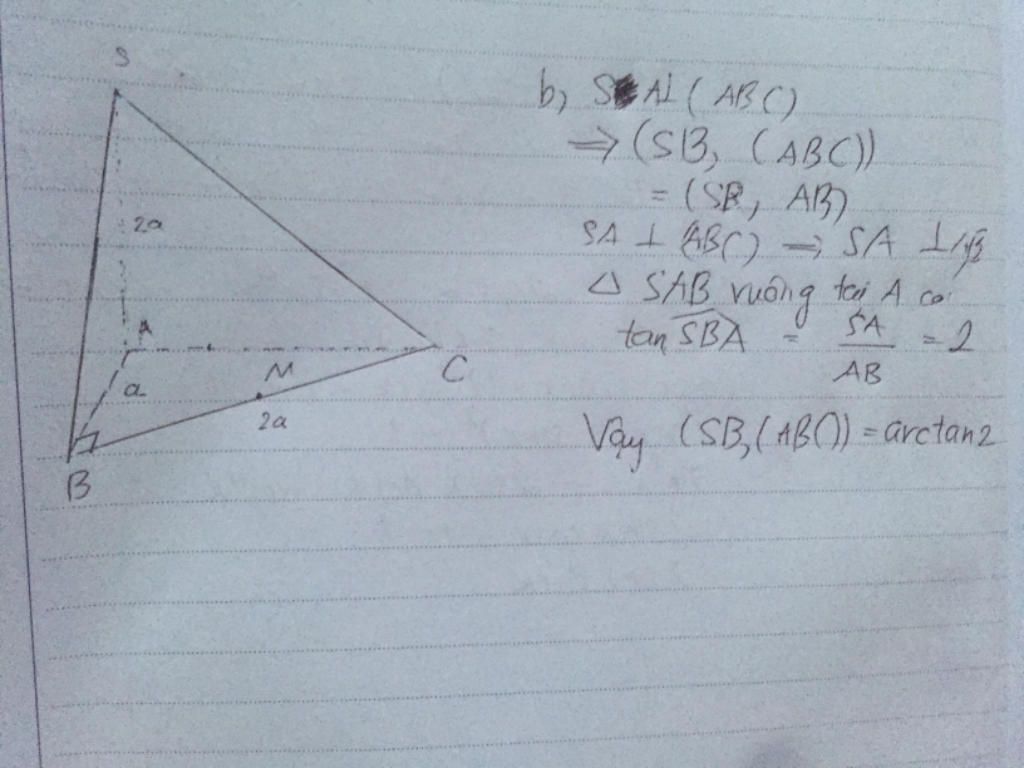 S
2a
A
a
M
C
2a
B
b, SA ⊥ (ABC)
⇒ (SB, (ABC))
= (SB, AB)
SA ⊥ (ABC) ⇒ SA ⊥ AB
△ SAB vuông tại A có
tan SBA = SA/AB = 2
Vậy (SB,(ABC)) = arctan2